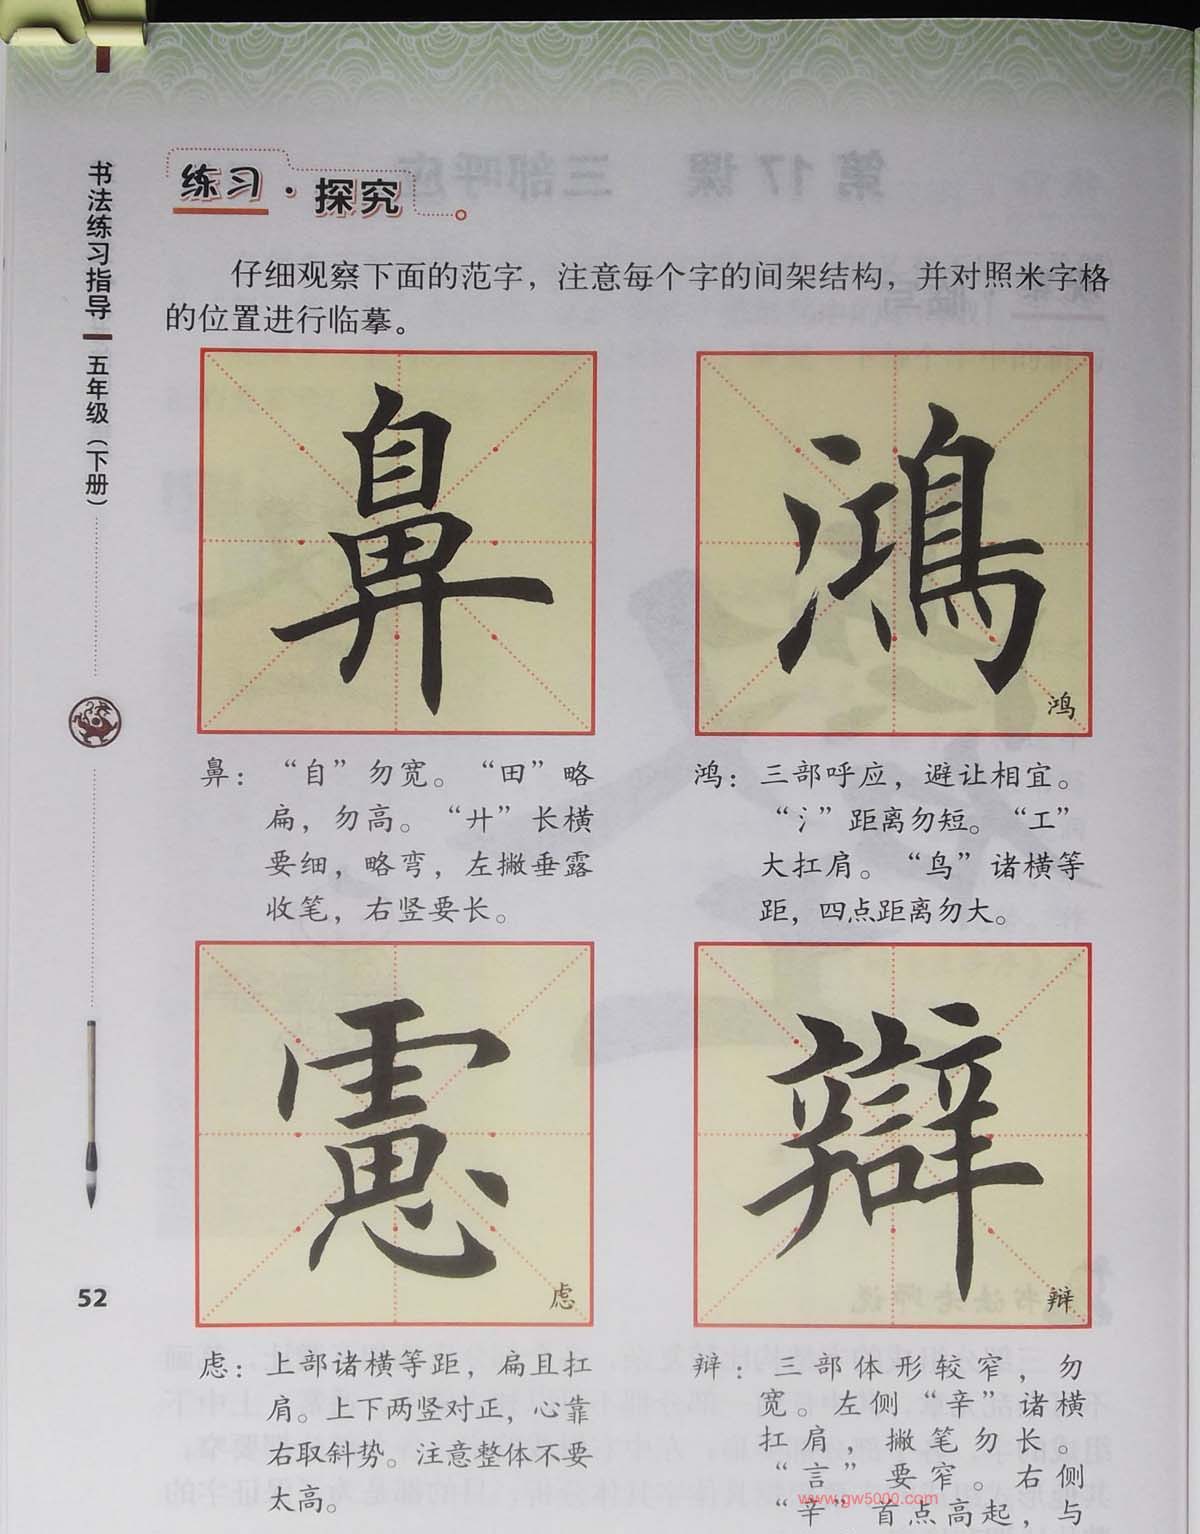 书法练习指导
五年级（下册）
练习·探究
仔细观察下面的范字，注意每个字的间架结构，并对照米字格
的位置进行临摹。
鼻
鴻
鸿
鼻：“自”勿宽。“田”略
扁，勿高。“廾”长横
要细，略弯，左撇垂露
收笔，右竖要长。
鸿：三部呼应，避让相宜。
“氵”距离勿短。“工”
大扛肩。“鸟”诸横等
距，四点距离勿大。
慮
虑
辯
辩
虑：上部诸横等距，扁且扛
肩。上下两竖对正，心靠
右取斜势。注意整体不要
太高。
辩：三部体形较窄，勿
宽。左侧“辛”诸横
扛肩，撇笔勿长。
“言”要窄。右侧
“辛”首点高起，与
52
www.gw5000.com